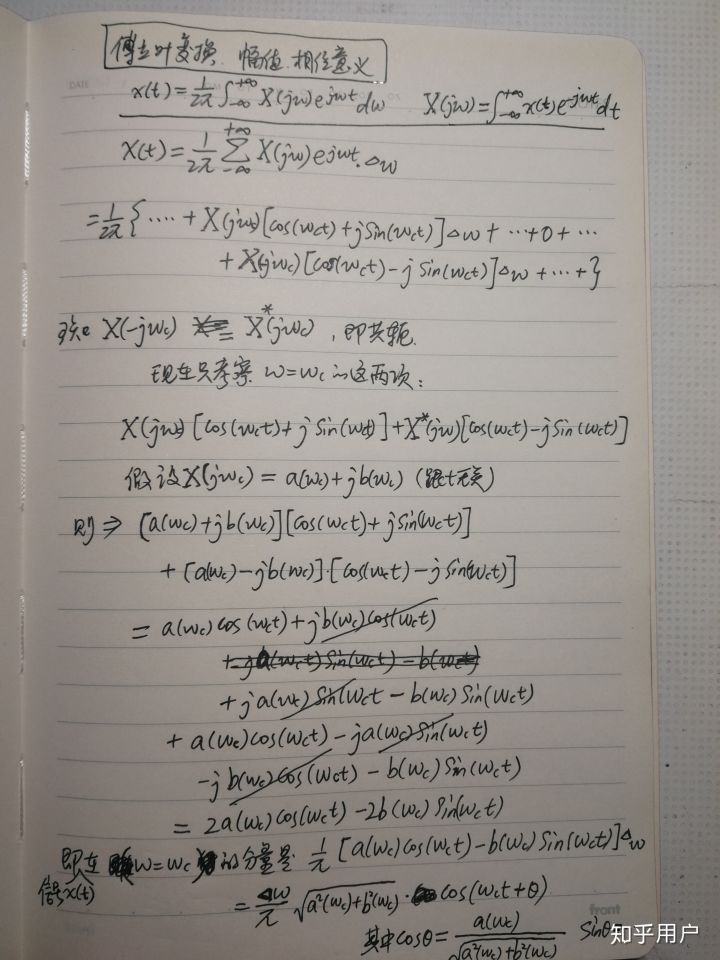 傅立叶变换、幅值、相位意义
x(t) = 1/2π ∫_{-∞}^{+∞} X(jω)e^{jωt}dω    X(jω) = ∫_{-∞}^{+∞} x(t)e^{-jωt}dt
X(t) = 1/2π Σ_{-∞}^{+∞} X(jω)e^{jωt}·Δω
= 1/2π {···· + X(jωc)[cos(ωct)+jsin(ωct)]Δω + ···+0+···
+ X(-jωc)[cos(ωct)-jsin(ωct)]Δω+···+}
X(-jωc) = X*(jωc), 即共轭.
现在只考察 ω=ωc 的这两项:
X(jω)[cos(ωct)+jsin(ωct)]+X*(jω)[cos(ωct)-jsin(ωct)]
假设X(jωc) = a(ωc)+jb(ωc) (跟t无关)
则⇒ [a(ωc)+jb(ωc)][cos(ωct)+jsin(ωct)]
+ [a(ωc)-jb(ωc)]·[cos(ωct)-jsin(ωct)]
= a(ωc)cos(ωct)+jb(ωc)cos(ωct)
+ja(ωc)sin(ωct)-b(ωct)
+ja(ωc)sin(ωct - b(ωc)sin(ωct)
+ a(ωc)cos(ωct)-ja(ωc)sin(ωct)
-jb(ωc)cos(ωct)-b(ωc)sin(ωct)
= 2a(ωc)cos(ωct)-2b(ωc)sin(ωct)
即在 ω=ωc 的分量是 1/π [a(ωc)cos(ωct)-b(ωc)sin(ωct)]Δω
信号x(t)
= Δω/π √(a²(ωc)+b²(ωc))·cos(ωct+θ)
front
其中cosθ= a(ωc)/√(a²(ωc)+b²(ωc)) sinθ=
知乎用户